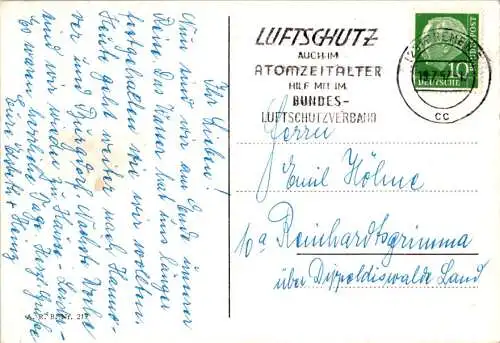 Ihr Lieben!
Nun sind wir am Ende unserer
Reise. Der Harz hat uns länger
festgehalten wie wir wollten.
Heute geht weiter nach Hanno-
ver und Burgdorf. Nächste Woche
sind wir wieder zu Hause.
Es waren herrliche Tage. Herzl. Grüße
Eure
Heinz
A. R. B. Nr. 217
LUFTSCHUTZ
AUCH IM
ATOMZEITALTER
HILF MIT IM
BUNDES-
LUFTSCHUTZVERBAND
BREMEN
cc
10
DEUTSCHE
BUNDESPOST
Herrn
Emil Höhne
10a Reinhardtsgrimma
über Dippoldiswalde Land